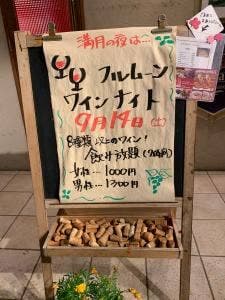 満月の夜は…
フルムーン
ワインナイト
9月14日(土)
8種類以上のワイン!
飲み放題(90分)
女性…1000円
男性…1300円